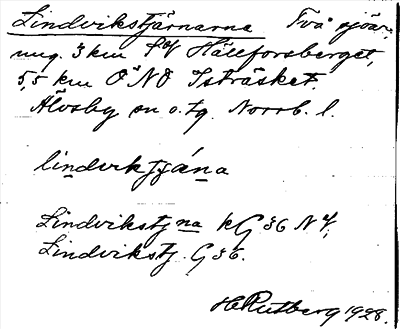 Lindvikstjärnarna Två sjöar,
ung. 3 km NV Hällforsberget,
5,5 km ONO Isträsket.
Älvsby sn o. tg. Norrb. l.
lindviktjäna
Lindvikstj na kG 36 NV,
Lindvikstj. G 36.
H Rutberg 1928.